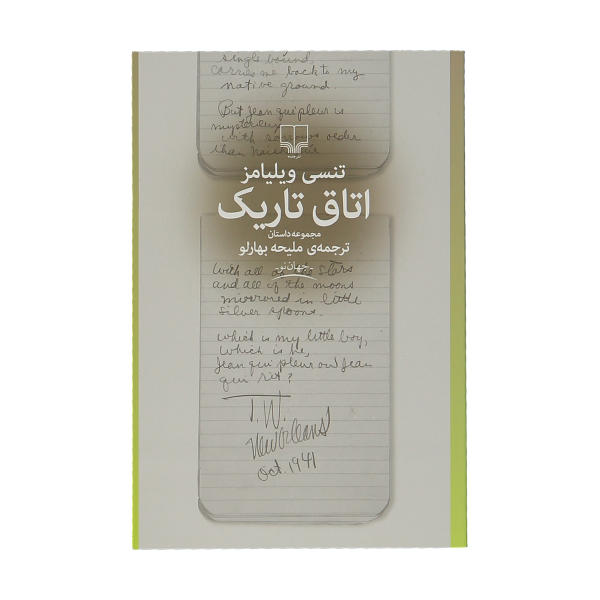 single bound,
carries me back to my
native ground.
But Jean qui pleur is
mysterious
with sorrows older
than
نشرچشمه
تنسی ویلیامز
اتاق تاریک
مجموعه داستان
ترجمه‌ی ملیحه بهارلو
جهان‌نو
with all of the stars
and all of the moons
mirrored in little
silver spoons.
which is my little boy,
which is he,
Jean qui pleur ou Jean
qui rit?
T.W.
New Orleans
Oct. 1941